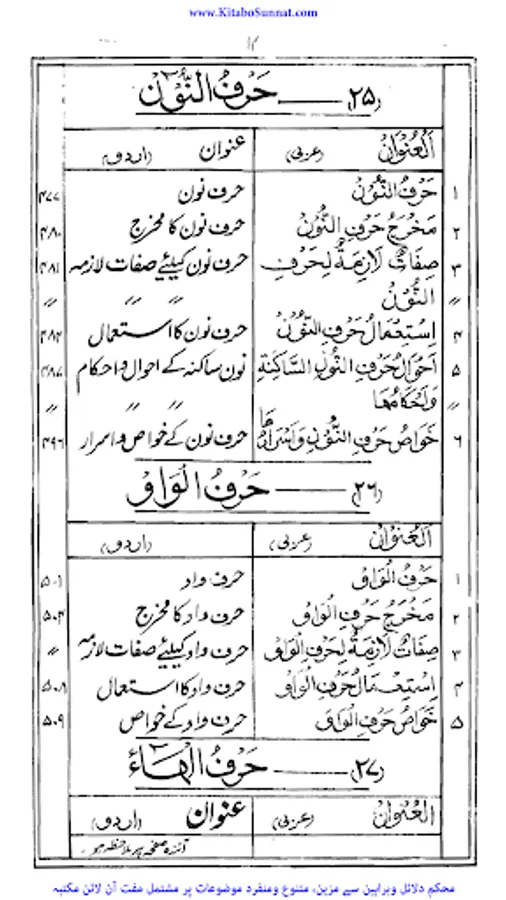 www.KitaboSunnat.com
۱۲
(۲۵) —— حَرْفُ النُّوْنِ
اَلْعُنْوَانُ (عربی) عنوان (اردو)
۱ حَرْفُ النُّوْنُ حرف نون ۴۷۷
۲ مَخْرَجُ حَرْفِ النُّوْنُ حرف نون کا مخرج ۴۸۰
۳ صِفَاتٌ لَازِمَةٌ لِحَرْفِ حرف نون کیلئے صفات لازمہ ۴۸۱
〃 النُّوْنُ 〃 〃 〃
۴ اِسْتِعْمَالُ حَرْفِ النُّوْنُ حرف نون کا استعمال ۴۸۲
۵ اَحْوَالُ حَرْفِ النُّوْنِ السَّاكِنَةِ نون ساکنہ کے احوال و احکام ۴۸۷
〃 وَاَحْكَامُهَا 〃 〃 〃
۶ خَوَاصُ حَرْفِ النُّوْنِ وَاَسْرَارُهَا حرف نون کے خواص و اسرار ۴۹۶
(۲۶) —— حَرْفُ الْوَاوِ
اَلْعُنْوَانُ (عربی) (اردو)
۱ حَرْفُ الْوَاوِ حرف واو ۵۰۱
۲ مَخْرَجُ حَرْفِ الْوَاوِ حرف واو کا مخرج ۵۰۴
۳ صِفَاتٌ لَازِمَةٌ لِحَرْفِ الْوَاوِ حرف واو کیلئے صفات لازمہ 〃
۴ اِسْتِعْمَالُ حَرْفِ الْوَاوِ حرف واو کا استعمال ۵۰۸
۵ خَوَاصُ حَرْفِ الْوَاوِ حرف واو کے خواص ۵۰۹
(۲۷) —— حَرْفُ الْهَاءِ
اَلْعُنْوَانُ (عربی) عنوان (اردو)
آئندہ صفحہ پر ملاحظہ ہو۔
محکم دلائل وبراہین سے مزین، متنوع ومنفرد موضوعات پر مشتمل مفت آن لائن مکتبہ